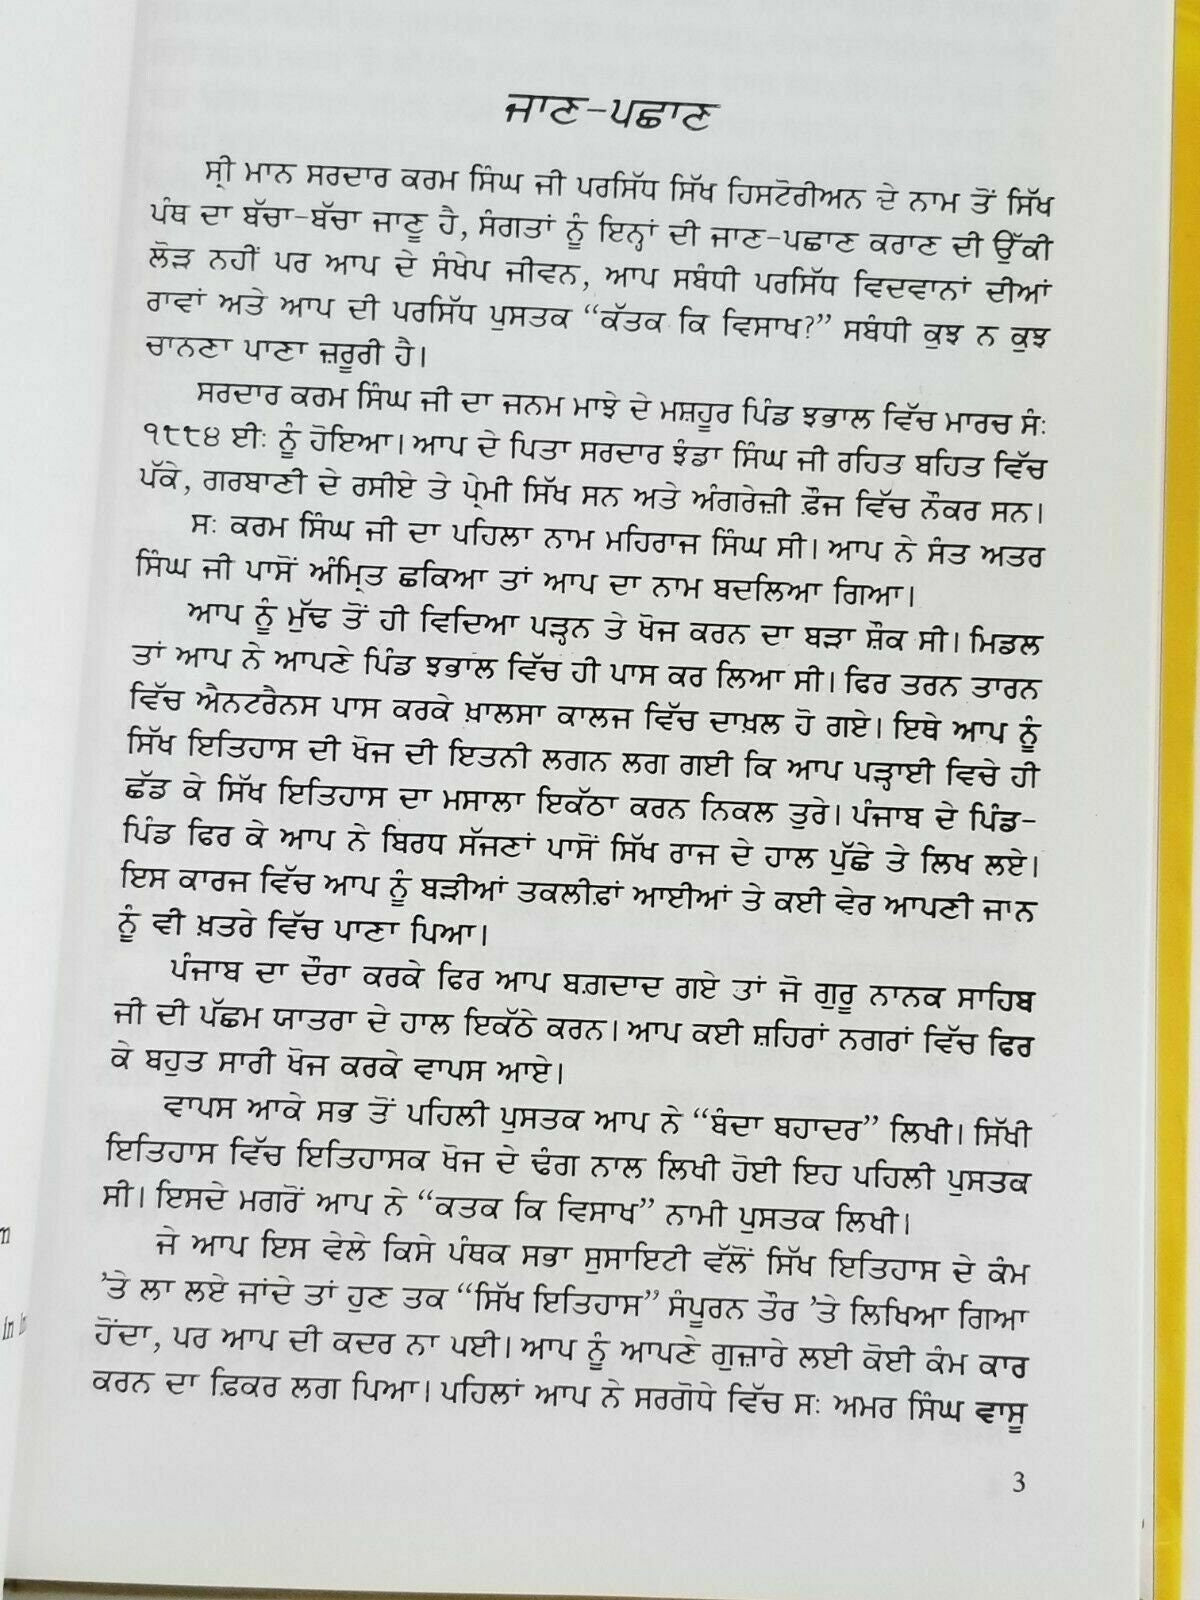 ਜਾਣ-ਪਛਾਣ
ਸ੍ਰੀ ਮਾਨ ਸਰਦਾਰ ਕਰਮ ਸਿੰਘ ਜੀ ਪਰਸਿੱਧ ਸਿੱਖ ਹਿਸਟੋਰੀਅਨ ਦੇ ਨਾਮ ਤੋਂ ਸਿੱਖ
ਪੰਥ ਦਾ ਬੱਚਾ-ਬੱਚਾ ਜਾਣੂ ਹੈ, ਸੰਗਤਾਂ ਨੂੰ ਇਨ੍ਹਾਂ ਦੀ ਜਾਣ-ਪਛਾਣ ਕਰਾਣ ਦੀ ਉੱਕੀ
ਲੋੜ ਨਹੀਂ ਪਰ ਆਪ ਦੇ ਸੰਖੇਪ ਜੀਵਨ, ਆਪ ਸਬੰਧੀ ਪਰਸਿੱਧ ਵਿਦਵਾਨਾਂ ਦੀਆਂ
ਰਾਵਾਂ ਅਤੇ ਆਪ ਦੀ ਪਰਸਿੱਧ ਪੁਸਤਕ “ਕੱਤਕ ਕਿ ਵਿਸਾਖ?” ਸਬੰਧੀ ਕੁਝ ਨ ਕੁਝ
ਚਾਨਣਾ ਪਾਣਾ ਜ਼ਰੂਰੀ ਹੈ।
ਸਰਦਾਰ ਕਰਮ ਸਿੰਘ ਜੀ ਦਾ ਜਨਮ ਮਾਝੇ ਦੇ ਮਸ਼ਹੂਰ ਪਿੰਡ ਝਭਾਲ ਵਿੱਚ ਮਾਰਚ ਸੰਃ
੧੮੮੪ ਈਃ ਨੂੰ ਹੋਇਆ। ਆਪ ਦੇ ਪਿਤਾ ਸਰਦਾਰ ਝੰਡਾ ਸਿੰਘ ਜੀ ਰਹਿਤ ਬਹਿਤ ਵਿੱਚ
ਪੱਕੇ, ਗਰਬਾਣੀ ਦੇ ਰਸੀਏ ਤੇ ਪ੍ਰੇਮੀ ਸਿੱਖ ਸਨ ਅਤੇ ਅੰਗਰੇਜ਼ੀ ਫ਼ੌਜ ਵਿੱਚ ਨੌਕਰ ਸਨ।
ਸਃ ਕਰਮ ਸਿੰਘ ਜੀ ਦਾ ਪਹਿਲਾ ਨਾਮ ਮਹਿਰਾਜ ਸਿੰਘ ਸੀ। ਆਪ ਨੇ ਸੰਤ ਅਤਰ
ਸਿੰਘ ਜੀ ਪਾਸੋਂ ਅੰਮ੍ਰਿਤ ਛਕਿਆ ਤਾਂ ਆਪ ਦਾ ਨਾਮ ਬਦਲਿਆ ਗਿਆ।
ਆਪ ਨੂੰ ਮੁੱਢ ਤੋਂ ਹੀ ਵਿਦਿਆ ਪੜ੍ਹਨ ਤੇ ਖੋਜ ਕਰਨ ਦਾ ਬੜਾ ਸ਼ੌਕ ਸੀ। ਮਿਡਲ
ਤਾਂ ਆਪ ਨੇ ਆਪਣੇ ਪਿੰਡ ਝਭਾਲ ਵਿੱਚ ਹੀ ਪਾਸ ਕਰ ਲਿਆ ਸੀ। ਫਿਰ ਤਰਨ ਤਾਰਨ
ਵਿੱਚ ਐਨਟਰੈਨਸ ਪਾਸ ਕਰਕੇ ਖ਼ਾਲਸਾ ਕਾਲਜ ਵਿੱਚ ਦਾਖ਼ਲ ਹੋ ਗਏ। ਇਥੇ ਆਪ ਨੂੰ
ਸਿੱਖ ਇਤਿਹਾਸ ਦੀ ਖੋਜ ਦੀ ਇਤਨੀ ਲਗਨ ਲਗ ਗਈ ਕਿ ਆਪ ਪੜ੍ਹਾਈ ਵਿਚੇ ਹੀ
ਛੱਡ ਕੇ ਸਿੱਖ ਇਤਿਹਾਸ ਦਾ ਮਸਾਲਾ ਇਕੱਠਾ ਕਰਨ ਨਿਕਲ ਤੁਰੇ। ਪੰਜਾਬ ਦੇ ਪਿੰਡ-
ਪਿੰਡ ਫਿਰ ਕੇ ਆਪ ਨੇ ਬਿਰਧ ਸੱਜਣਾਂ ਪਾਸੋਂ ਸਿੱਖ ਰਾਜ ਦੇ ਹਾਲ ਪੁੱਛੇ ਤੇ ਲਿਖ ਲਏ।
ਇਸ ਕਾਰਜ ਵਿੱਚ ਆਪ ਨੂੰ ਬੜੀਆਂ ਤਕਲੀਫ਼ਾਂ ਆਈਆਂ ਤੇ ਕਈ ਵੇਰ ਆਪਣੀ ਜਾਨ
ਨੂੰ ਵੀ ਖ਼ਤਰੇ ਵਿੱਚ ਪਾਣਾ ਪਿਆ।
ਪੰਜਾਬ ਦਾ ਦੌਰਾ ਕਰਕੇ ਫਿਰ ਆਪ ਬਗ਼ਦਾਦ ਗਏ ਤਾਂ ਜੋ ਗੁਰੂ ਨਾਨਕ ਸਾਹਿਬ
ਜੀ ਦੀ ਪੱਛਮ ਯਾਤਰਾ ਦੇ ਹਾਲ ਇਕੱਠੇ ਕਰਨ। ਆਪ ਕਈ ਸ਼ਹਿਰਾਂ ਨਗਰਾਂ ਵਿੱਚ ਫਿਰ
ਕੇ ਬਹੁਤ ਸਾਰੀ ਖੋਜ ਕਰਕੇ ਵਾਪਸ ਆਏ।
ਵਾਪਸ ਆਕੇ ਸਭ ਤੋਂ ਪਹਿਲੀ ਪੁਸਤਕ ਆਪ ਨੇ “ਬੰਦਾ ਬਹਾਦਰ” ਲਿਖੀ। ਸਿੱਖੀ
ਇਤਿਹਾਸ ਵਿੱਚ ਇਤਿਹਾਸਕ ਖੋਜ ਦੇ ਢੰਗ ਨਾਲ ਲਿਖੀ ਹੋਈ ਇਹ ਪਹਿਲੀ ਪੁਸਤਕ
ਸੀ। ਇਸਦੇ ਮਗਰੋਂ ਆਪ ਨੇ “ਕਤਕ ਕਿ ਵਿਸਾਖ” ਨਾਮੀ ਪੁਸਤਕ ਲਿਖੀ।
ਜੇ ਆਪ ਇਸ ਵੇਲੇ ਕਿਸੇ ਪੰਥਕ ਸਭਾ ਸੁਸਾਇਟੀ ਵੱਲੋਂ ਸਿੱਖ ਇਤਿਹਾਸ ਦੇ ਕੰਮ
’ਤੇ ਲਾ ਲਏ ਜਾਂਦੇ ਤਾਂ ਹੁਣ ਤਕ “ਸਿੱਖ ਇਤਿਹਾਸ” ਸੰਪੂਰਨ ਤੌਰ ’ਤੇ ਲਿਖਿਆ ਗਿਆ
ਹੋਂਦਾ, ਪਰ ਆਪ ਦੀ ਕਦਰ ਨਾ ਪਈ। ਆਪ ਨੂੰ ਆਪਣੇ ਗੁਜ਼ਾਰੇ ਲਈ ਕੋਈ ਕੰਮ ਕਾਰ
ਕਰਨ ਦਾ ਫ਼ਿਕਰ ਲਗ ਪਿਆ। ਪਹਿਲਾਂ ਆਪ ਨੇ ਸਰਗੋਧੇ ਵਿੱਚ ਸਃ ਅਮਰ ਸਿੰਘ ਵਾਸੂ
3